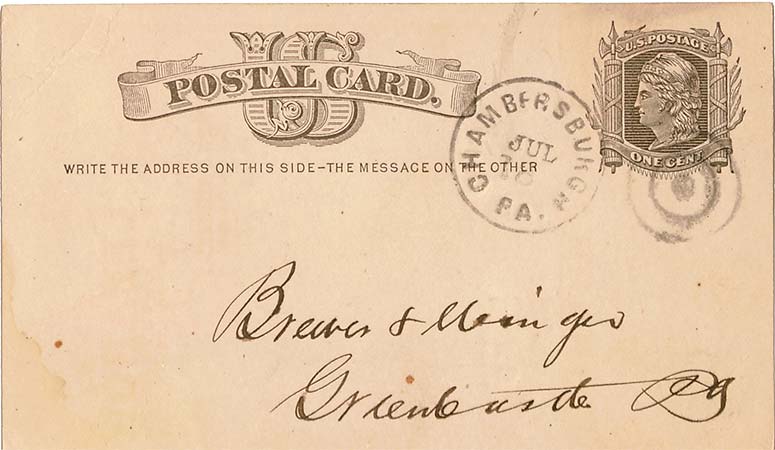 US
POSTAL CARD.
U.S. POSTAGE
ONE CENT
WRITE THE ADDRESS ON THIS SIDE-THE MESSAGE ON THE OTHER
CHAMBERSBURGH
JUL
PA.
Brewer &
Greencastle Pa